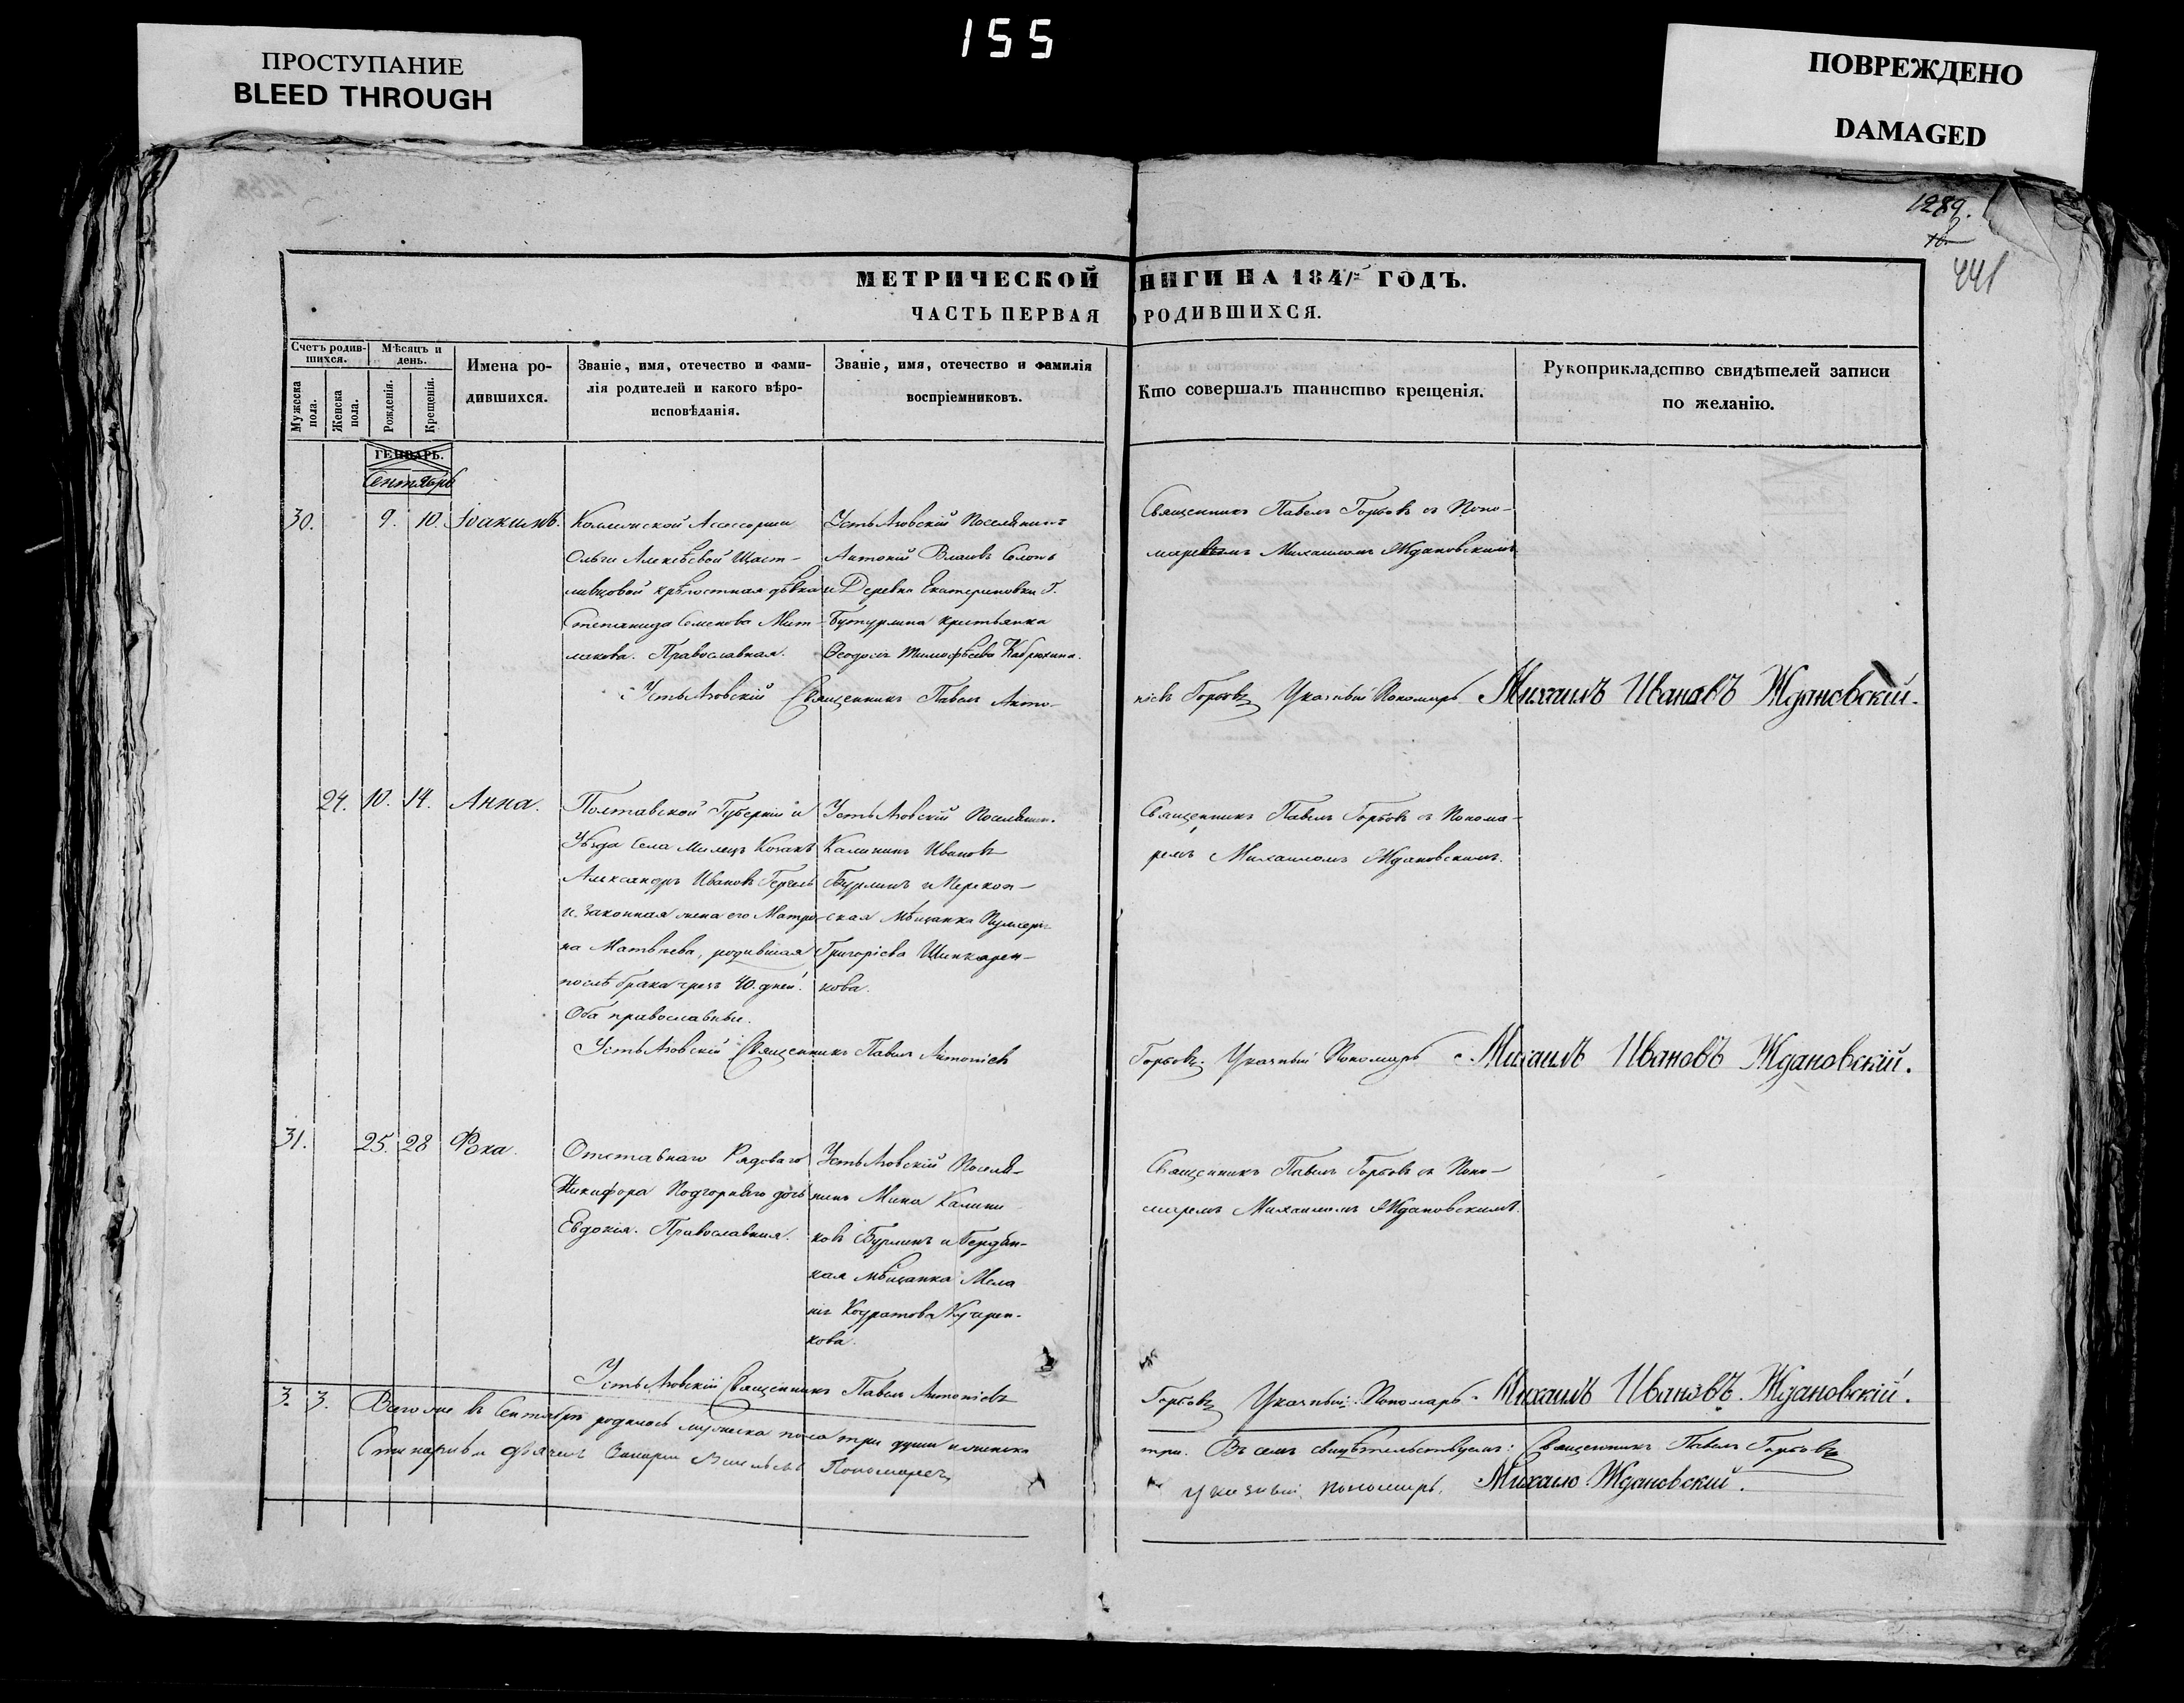 155
ПРОСТУПАНИЕ
BLEED THROUGH
ПОВРЕЖДЕНО
DAMAGED
1289.
441
МЕТРИЧЕСКОЙ НИГИ НА 1847 ГОДЪ.
ЧАСТЬ ПЕРВАЯ О РОДИВШИХСЯ.
Счетъ родив-
шихся.
Мужеска пола.
Женска пола.
Мѣсяцъ и
день.
Рожденія.
Крещенія.
Имена ро-
дившихся.
Званіе, имя, отечество и фами-
лія родителей и какого вѣро-
исповѣданія.
Званіе, имя, отечество и фамилія
воспріемниковъ.
Кто совершалъ таинство крещенія.
Рукоприкладство свидѣтелей записи
по желанію.
ГЕНВАРЬ.
Сентябрь
30. 9. 10. Іоакимъ.
Коллежской Ассесорши
Ольги Алексѣевой Щаст-
ливцовой крѣпостная дѣвка
Степанида Семенова Мит-
лакова. Православная.
УстьАзовскій Поселянинъ
Антоній Власовъ Слонь
и Деревни Екатериновки Г.
Бутурлина крестьянка
Ѳеодосія Тимофѣева Кабрюхина.
Священникъ Павелъ Горбовъ съ Поно-
маремъ Михаиломъ Ждановскимъ
УстьАзовскій Священникъ Павелъ Анто-
ніевъ Горбовъ Указный Пономарь Михаилъ Ивановъ Ждановскій.
24. 10. 14. Анна.
Полтавской Губерніи и
Уѣзда Села Милецъ Козакъ
Александръ Ивановъ
и законная жена его Матро-
на Матвѣева, родившая
послѣ брака чрезъ 40. дней.
Оба православные.
УстьАзовскій Поселянин.
Калиникъ Ивановъ
Бурлинъ и Перекоп-
ская мѣщанка Пулхерія
Григоріева Шинкарен-
кова.
Священникъ Павелъ Горбовъ съ Понома-
ремъ Михаиломъ Ждановскимъ.
УстьАзовскій Священникъ Павелъ Антоніевъ
Горбовъ. Указный Пономарь Михаилъ Ивановъ Ждановскій.
31. 25. 28 Фока.
Отставнаго Рядоваго
Никифора Подгорнаго дочь
Евдокія. Православная.
УстьАзовскій Поселя-
нинъ Мина Калини
ковъ Бурлинъ и Бердян-
кая мѣщанка Мела
нія Кодратова Кучерен-
кова.
Священникъ Павелъ Горбовъ съ Поно-
маремъ Михаиломъ Ждановскимъ.
УстьАзовскій Священникъ Павелъ Антоніевъ
Горбовъ Указный Пономарь. Михаилъ Ивановъ. Ждановскій.
3. 3. Всего же въ Сентябрѣ родилось мужеска пола три души и женска
три. Въ семъ свидѣтельствуемъ: Священникъ Павелъ Горбовъ
Пономаревъ
указный пономарь, Михаило Ждановскій.